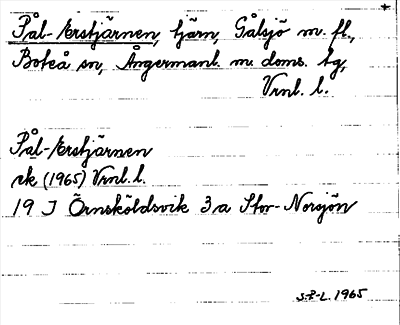 Pål-Erstjärnen, tjärn, Gålsjö m. fl.,
Boteå sn, Ångermanl. m. doms. tg,
Vrnl. l.
Pål-Erstjärnen
rk (1965) Vrnl. l.
19 J Örnsköldsvik 3 a Stor-Norsjön
S-P-L. 1965